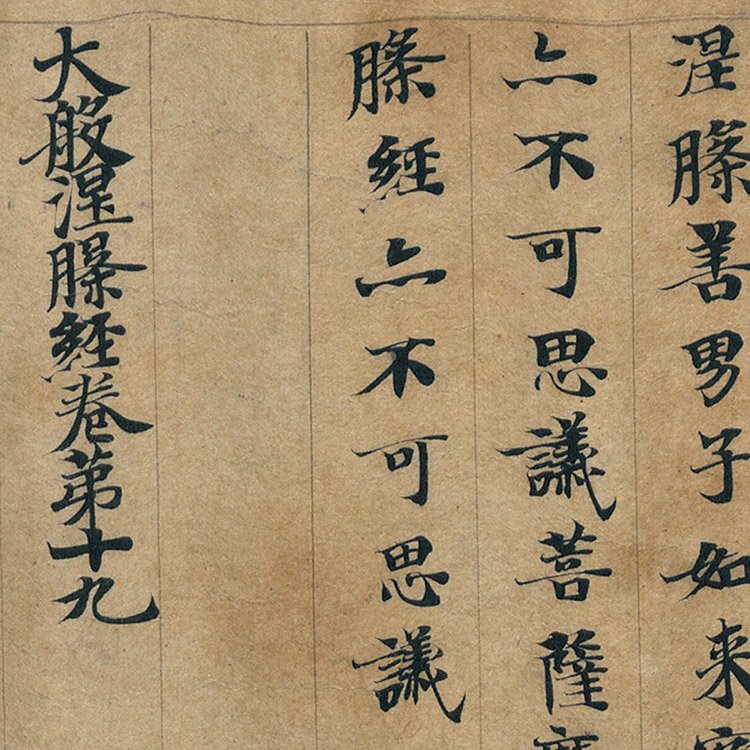 涅槃善男子如来
亦不可思議菩薩
槃經亦不可思議
大般涅槃經卷第十九